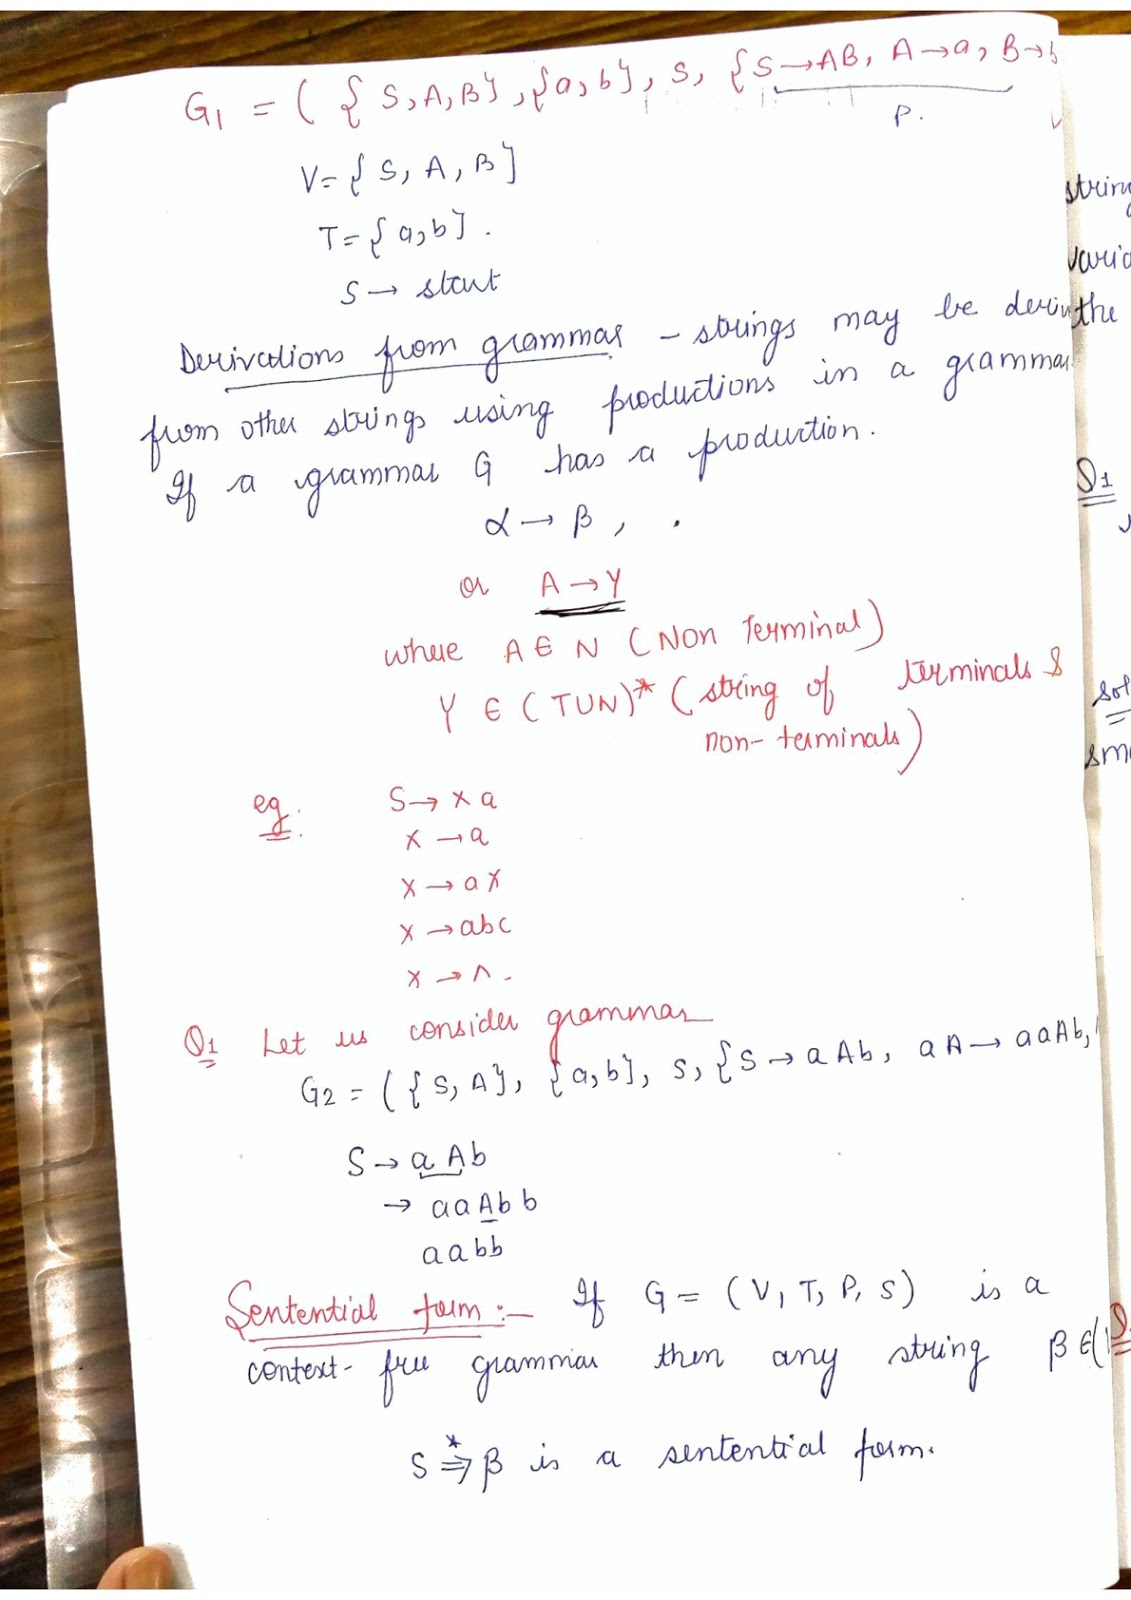 G1 = ( { S, A, B }, {a, b}, S, {S → AB, A → a, B → b
P.
V = { S, A, B }
T = { a, b } .
S → start
Derivations from grammar - strings may be
from other strings using productions in a grammar
If a grammar G has a production.
α → β ,
or A → Y
where A ∈ N (Non Terminal)
Y ∈ (TUN)* (string of terminals &
non-terminals)
eg. S → Xa
X → a
X → aX
X → abc
X → ^ .
Q1 Let us consider grammar
G2 = ( { S, A }, { a, b }, S, { S → aAb, aA → aaAb,
S → aAb
→ aaAbb
aabb
Sentential form :- If G = (V, T, P, S) is a
context-free grammar then any string β ∈ (
S ⇒* β is a sentential form.
the
Q1
sol